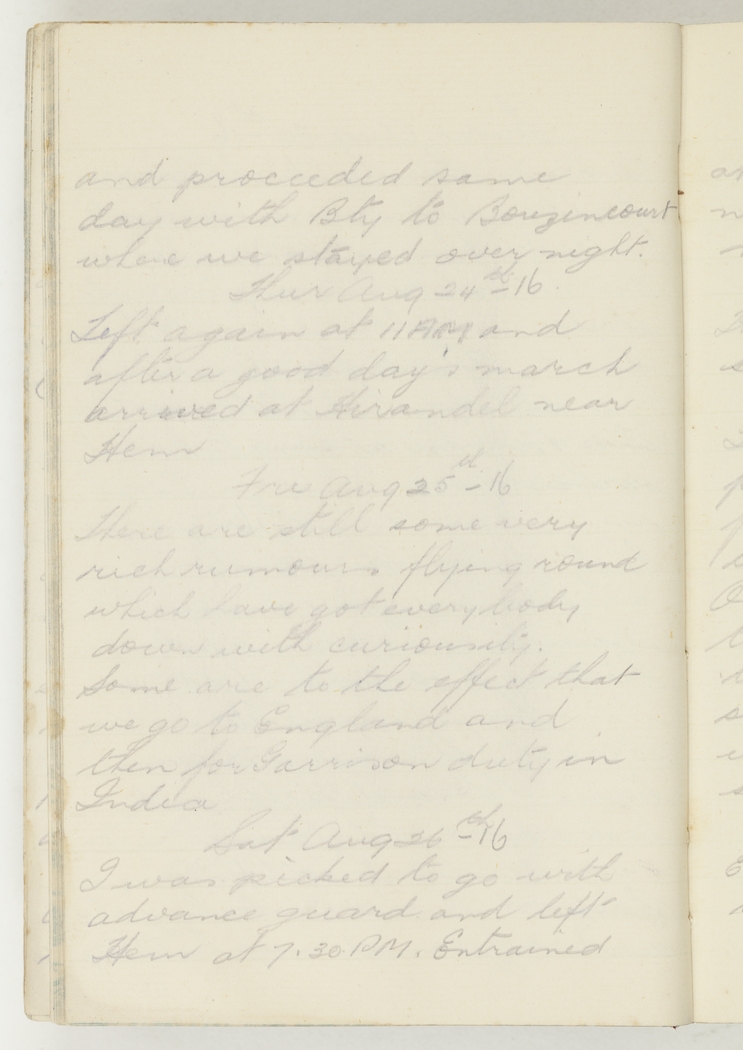 and proceeded same
day with Bty to Bouzincourt
where we stayed over night.
Thur Aug 24th-16.
Left again at 11 AM and
after a good day's march
arrived at near
Hem
Fri Aug 25th-16
There are still some very
rich rumours flying round
which have got everybody
down with curiousity.
Some are to the effect that
we go to England and
then for Garrison duty in
India
Sat Aug 26th-16
I was picked to go with
advance guard and left
Hem at 7.30 P.M. Entrained